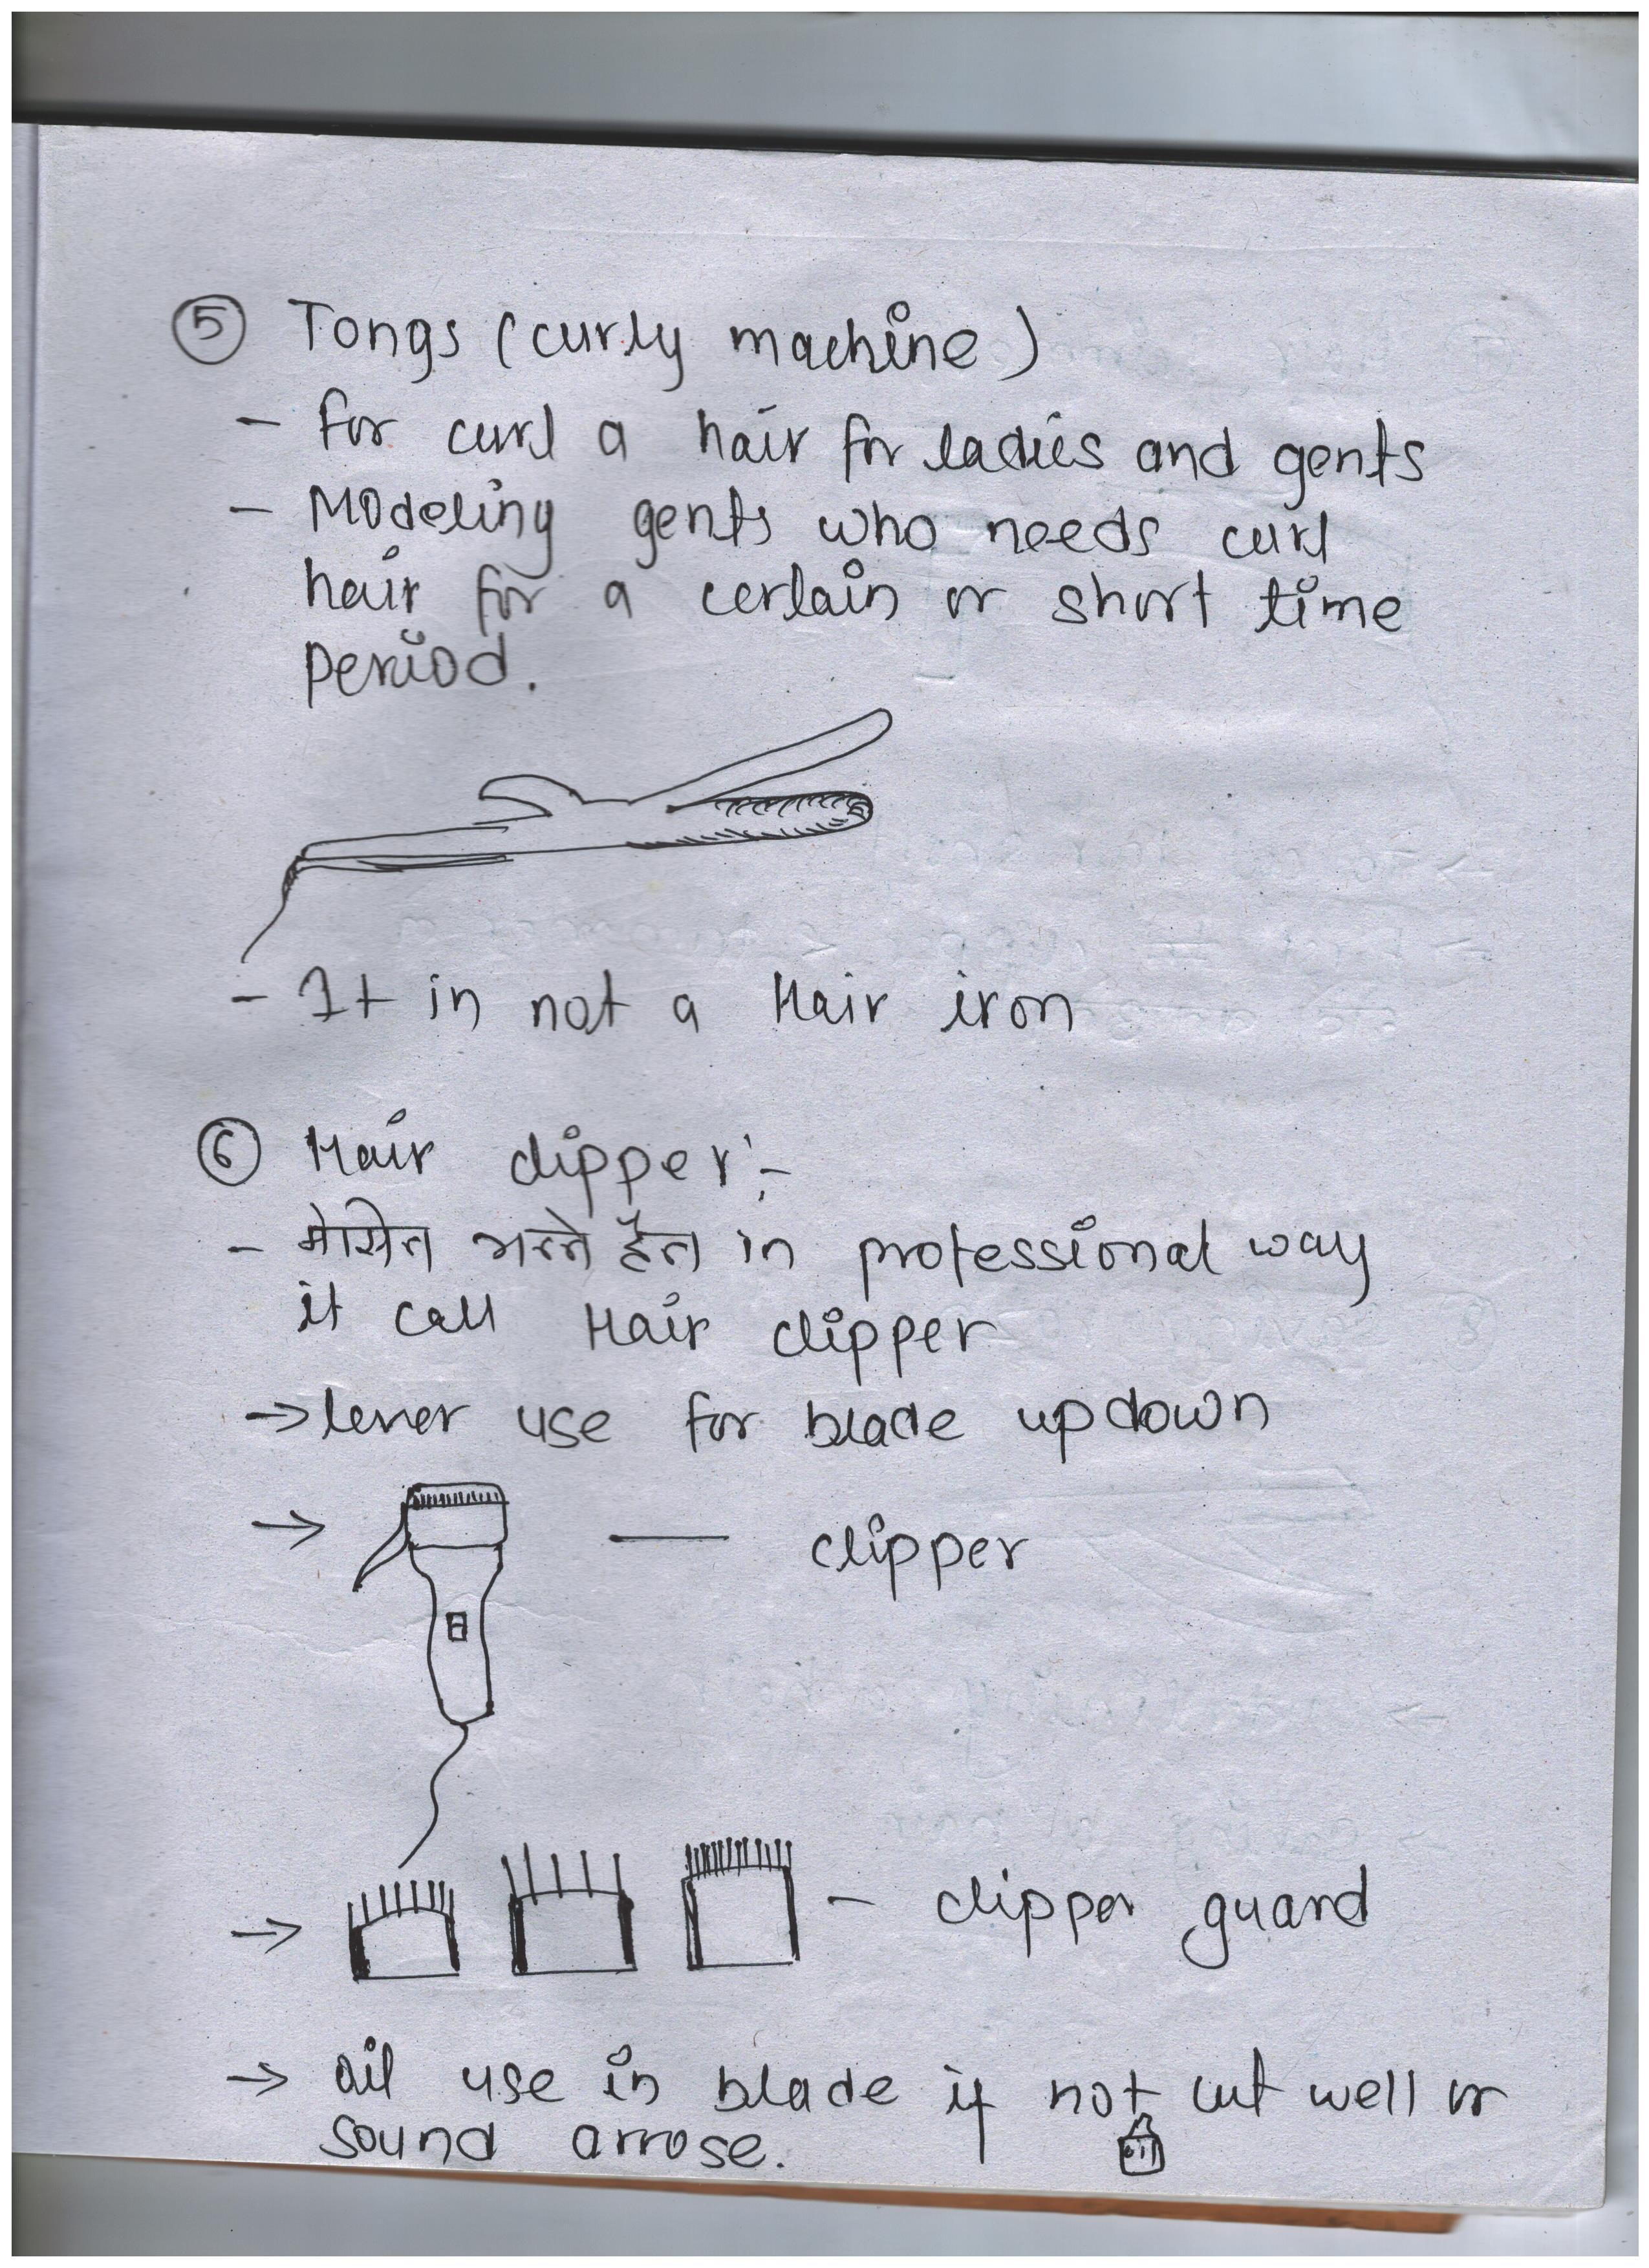 5 Tongs (curly machine)
- for curl a hair for ladies and gents
- Modeling gents who needs curl
hair for a certain or short time
period.
- It in not a Hair iron
6 Hair clipper :-
- मेसिन भन्ने हैन in professional way
it call Hair clipper
→ lever use for blade up down
→ — clipper
→ - clipper guard
→ oil use in blade if not cut well or
sound arrose.
oil